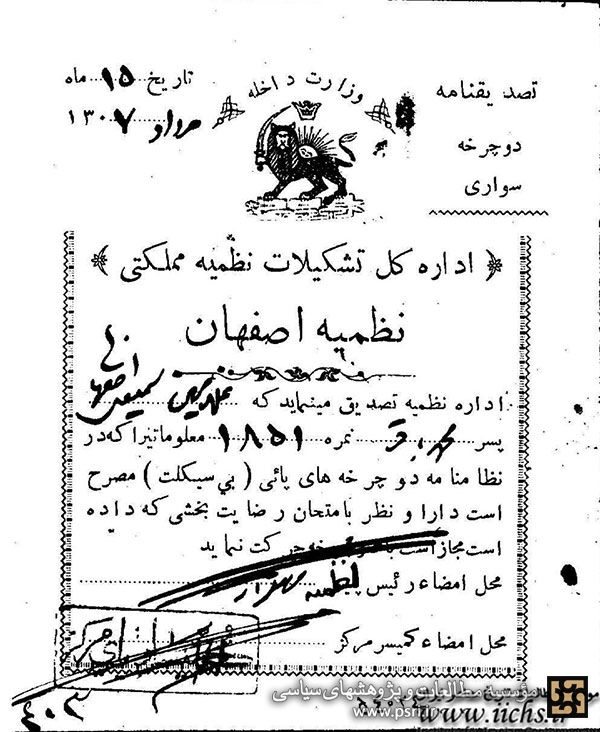 تصدیقنامه
دوچرخه
سواری
وزارت داخله
تاریخ ۱۵ ماه
مرداد ۱۳۰۷
اداره کل تشکیلات نظمیه مملکتی
نظمیه اصفهان
اداره نظمیه تصدیق مینماید که
پسر محمد باقر نمره ۱۸۵۱ معلوماتیرا که در
نظامنامه دوچرخه های پائی ( بی سیکلت ) مصرح
است دارا و نظر بامتحان رضایت بخشی که داده
است مجاز است حرکت نماید
محل امضاء رئیس نظمیه
محل امضاء کمیسر مرکز
مؤسسه مطالعات و پژوهشهای سیاسی
www.psri
www.iichs.ir